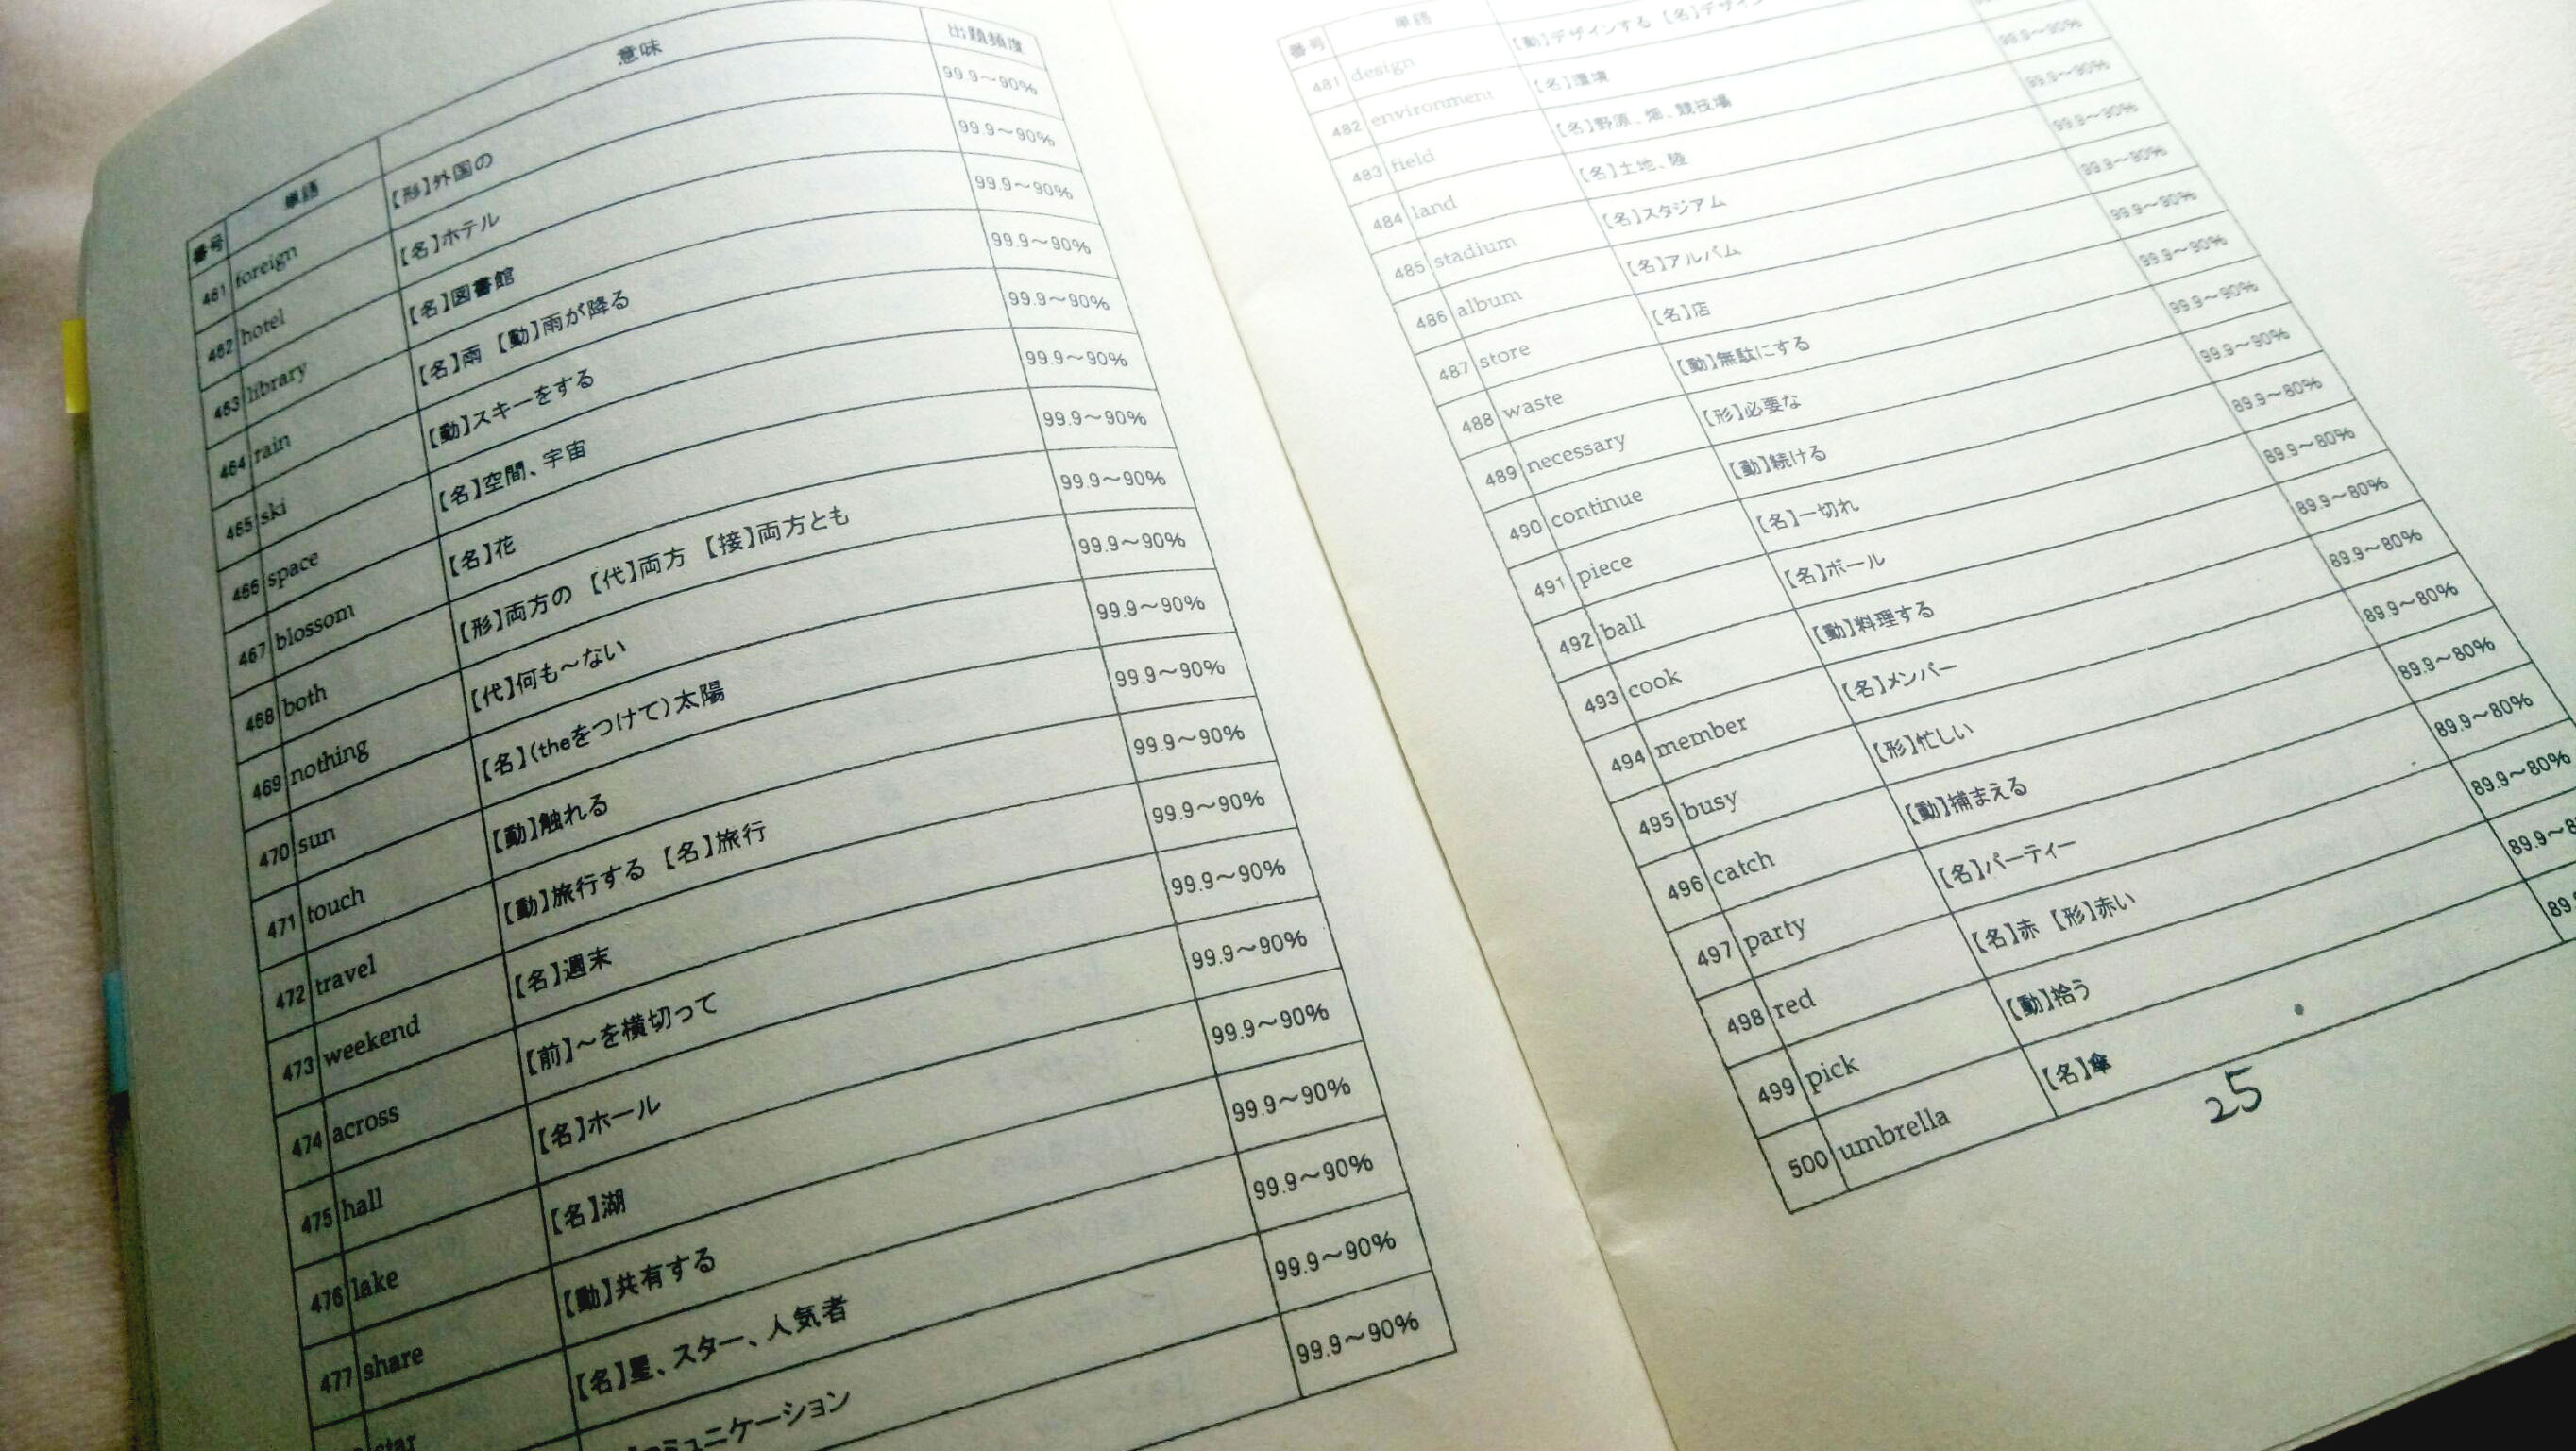 番号 単語 意味 出題頻度
461 foreign 【形】外国の 99.9～90%
462 hotel 【名】ホテル 99.9～90%
463 library 【名】図書館 99.9～90%
464 rain 【名】雨 【動】雨が降る 99.9～90%
465 ski 【動】スキーをする 99.9～90%
466 space 【名】空間、宇宙 99.9～90%
467 blossom 【名】花 99.9～90%
468 both 【形】両方の 【代】両方 【接】両方とも 99.9～90%
469 nothing 【代】何も～ない 99.9～90%
470 sun 【名】(theをつけて)太陽 99.9～90%
471 touch 【動】触れる 99.9～90%
472 travel 【動】旅行する 【名】旅行 99.9～90%
473 weekend 【名】週末 99.9～90%
474 across 【前】～を横切って 99.9～90%
475 hall 【名】ホール 99.9～90%
476 lake 【名】湖 99.9～90%
477 share 【動】共有する 99.9～90%
star 【名】星、スター、人気者 99.9～90%
コミュニケーション 99.9～90%
99.9～90%
番号 単語
481 design 【動】デザインする 【名】デザイン
482 environment 【名】環境 99.9～90%
483 field 【名】野原、畑、競技場 99.9～90%
484 land 【名】土地、陸 99.9～90%
485 stadium 【名】スタジアム 99.9～90%
486 album 【名】アルバム 99.9～90%
487 store 【名】店 99.9～90%
488 waste 【動】無駄にする 99.9～90%
489 necessary 【形】必要な 99.9～90%
490 continue 【動】続ける 99.9～90%
491 piece 【名】一切れ 89.9～80%
492 ball 【名】ボール 89.9～80%
493 cook 【動】料理する 89.9～80%
494 member 【名】メンバー 89.9～80%
495 busy 【形】忙しい 89.9～80%
496 catch 【動】捕まえる 89.9～80%
497 party 【名】パーティー 89.9～80%
498 red 【名】赤 【形】赤い 89.9～80%
499 pick 【動】拾う 89.9～8
500 umbrella 【名】傘 89.
25